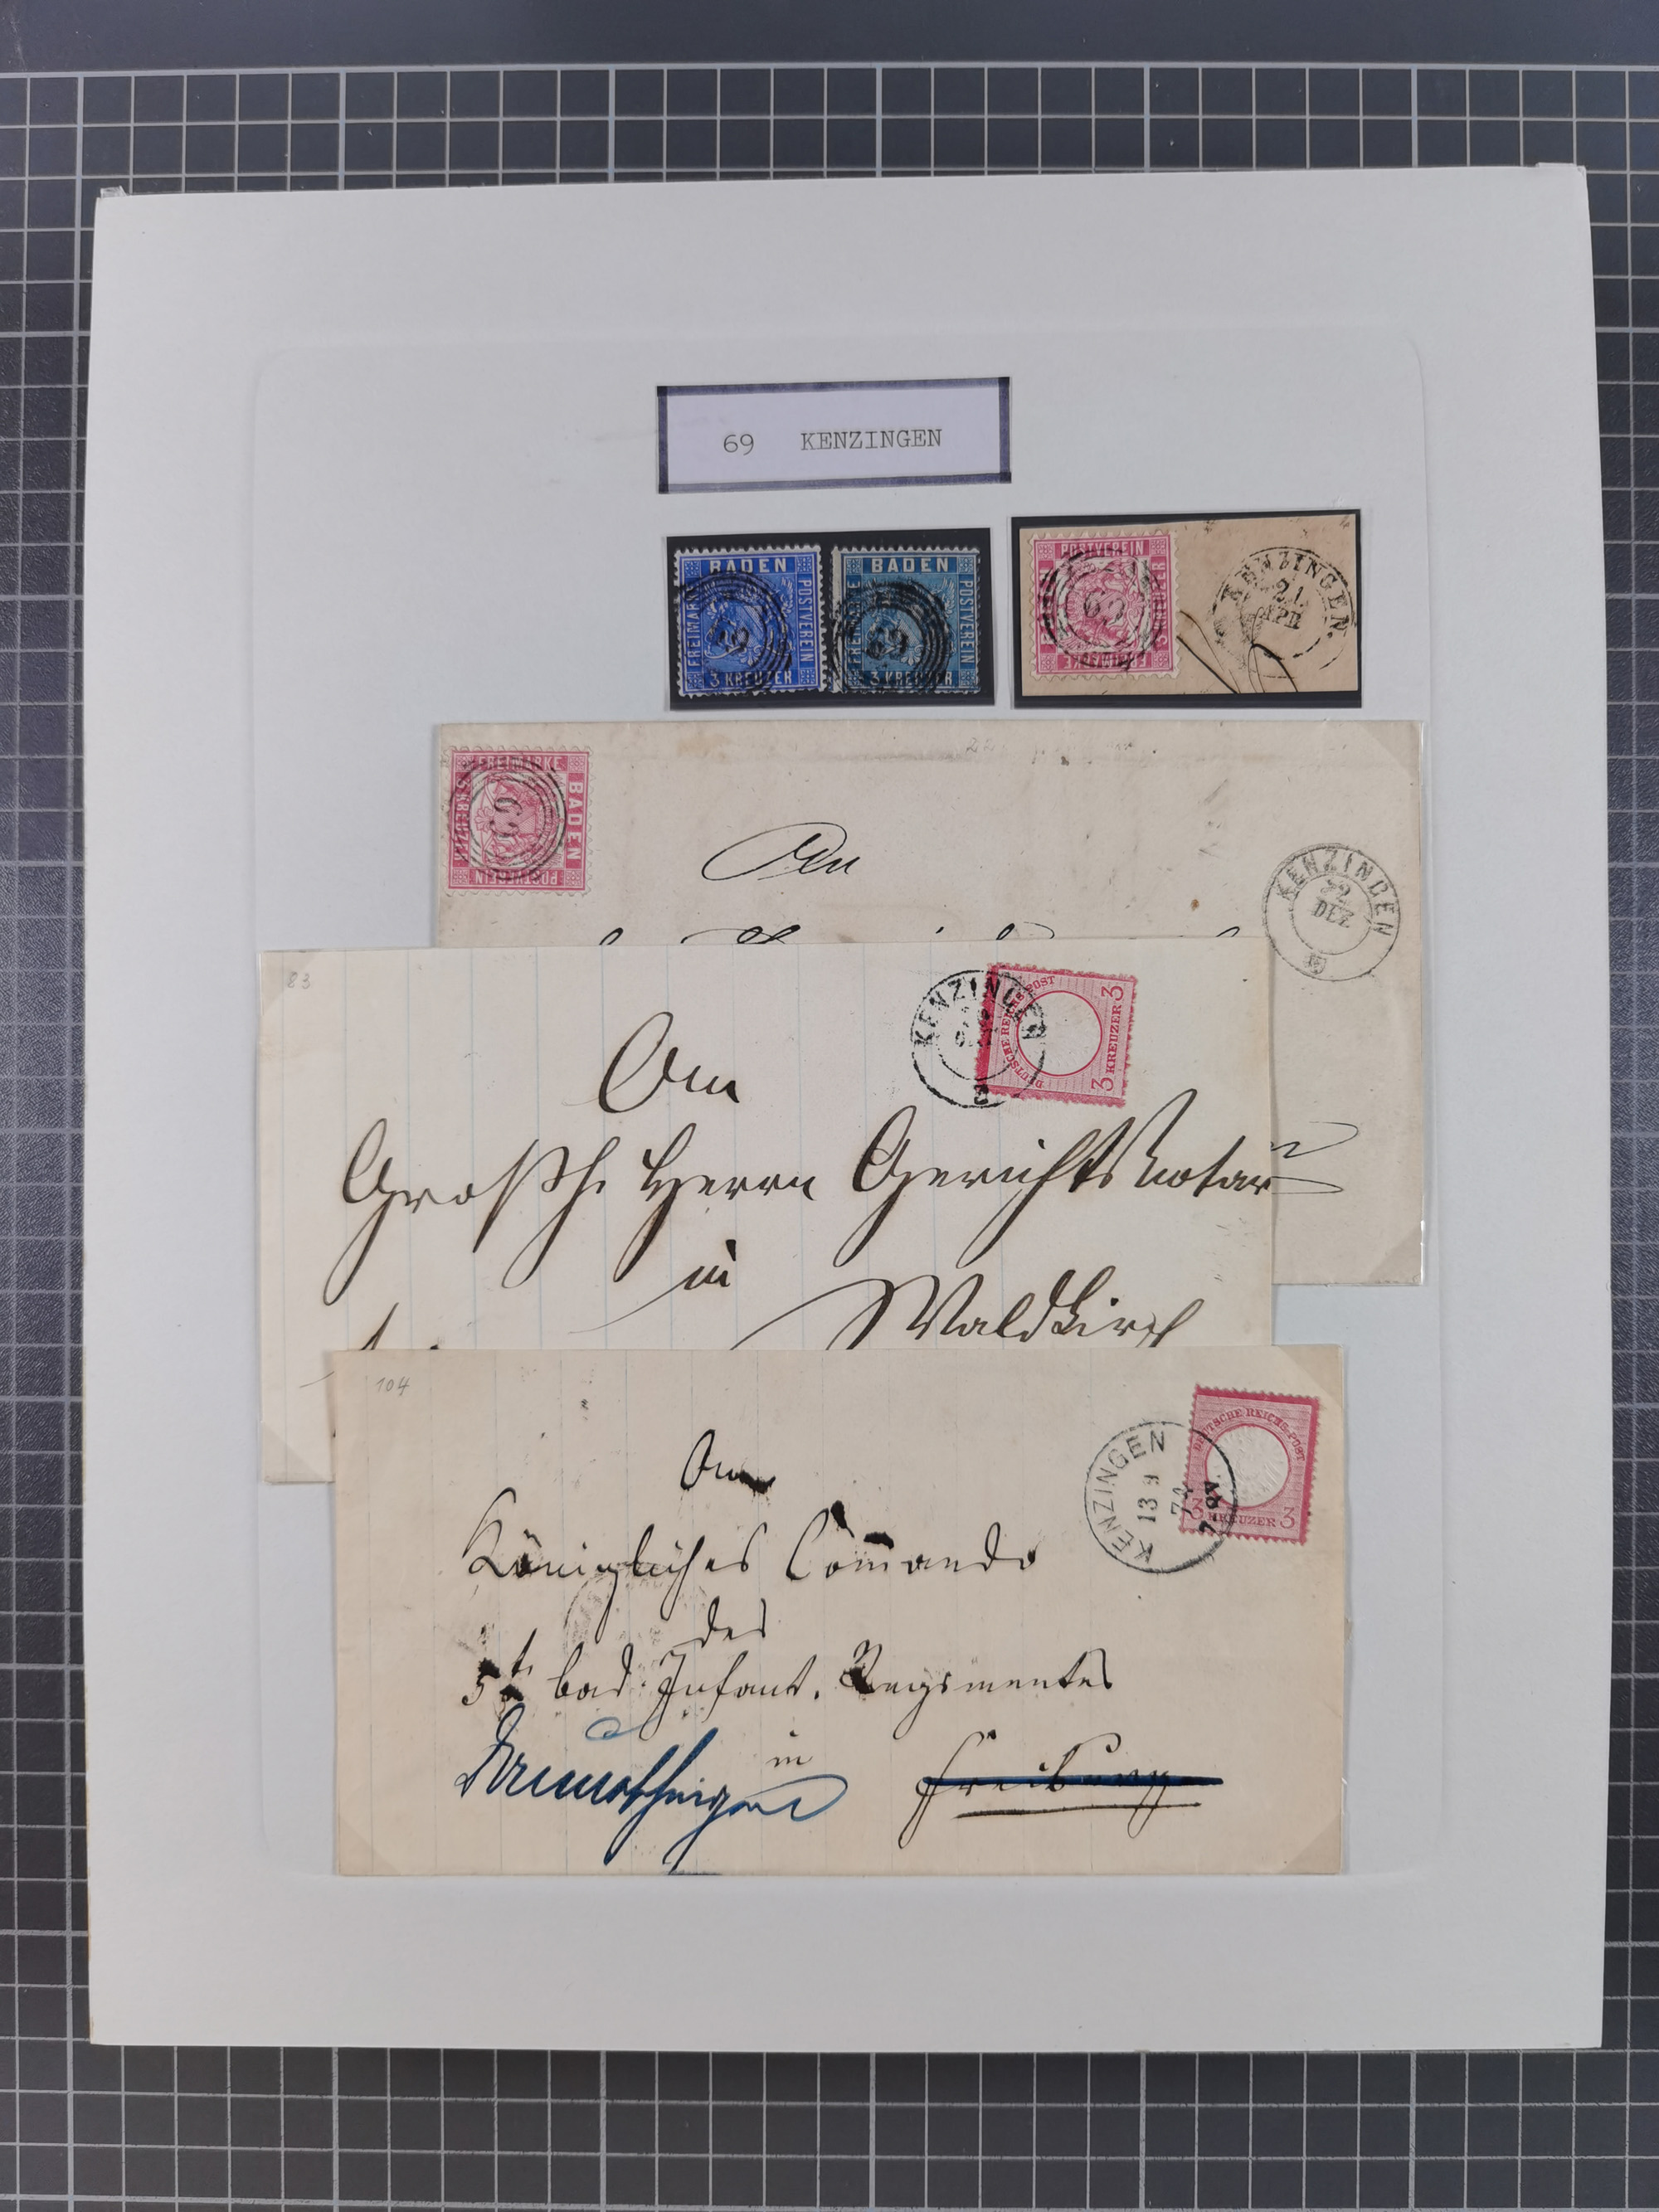 69 KENZINGEN
BADEN
FREIMARKE
POSTVEREIN
3 KREUZER
69
BADEN
FREIMARKE
POSTVEREIN
3 KREUZER
69
POSTVEREIN
69
KENZINGEN.
21
APR
FREIMARKE
BADEN
POSTVEREIN
69
KENZINGEN
22
DEZ
83
KENZINGEN
DEUTSCHE REICHS-POST
3 KREUZER 3
An
Großh. Herrn Gerichtsnotar
in
Waldkirch
104
KENZINGEN
13 9
74
DEUTSCHE REICHS-POST
3 KREUZER 3
Königliches Commando
des
5t bad. Infant. Regimentes
in
Freiburg